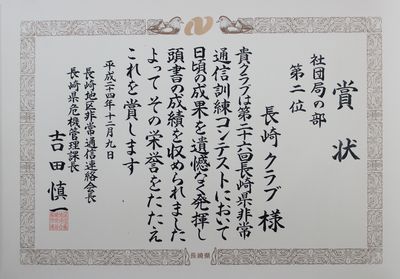 賞状
社団局の部
第二位
長崎クラブ 様
貴クラブは第二十六回長崎県非常
通信訓練コンテストにおいて
日頃の成果を遺憾なく発揮し
頭書の成績を収められました
よって その栄誉をたたえ
これを賞します
平成二十四年十二月九日
長崎地区非常通信連絡会長
長崎県危機管理課長
吉田慎一
長崎県